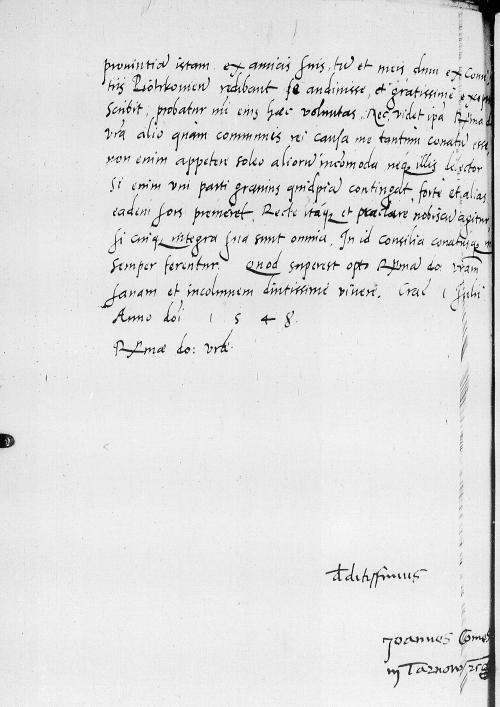 prouintia istam. ex amicis suis, tu et meis dnm ex Comi
tiis Piotrkomien redibant se audiuisse, et gratissime
scribit, probatur mi eius haec voluntas. Recte videt ipa Rma d
vra alio quam communis rei causa me tantum conatu esse
non enim appetere soleo alioru incomoda neq illis delector
Si enim vni parti grauius quidpia contingat, forte et alias
eadem sors premeret, Recte itaq et praeclare nobiscu agitur
si cuiq integra sua sunt omnia. In id consilia conatusq
semper ferentur. Quod superest opto Rmae do: vram
sanam et incolumem diutissime viuere. Crac 1 Febr
Anno doi 1548.
Rmae do: vrae
dditissimus
Joannes Comes
in Tarnow